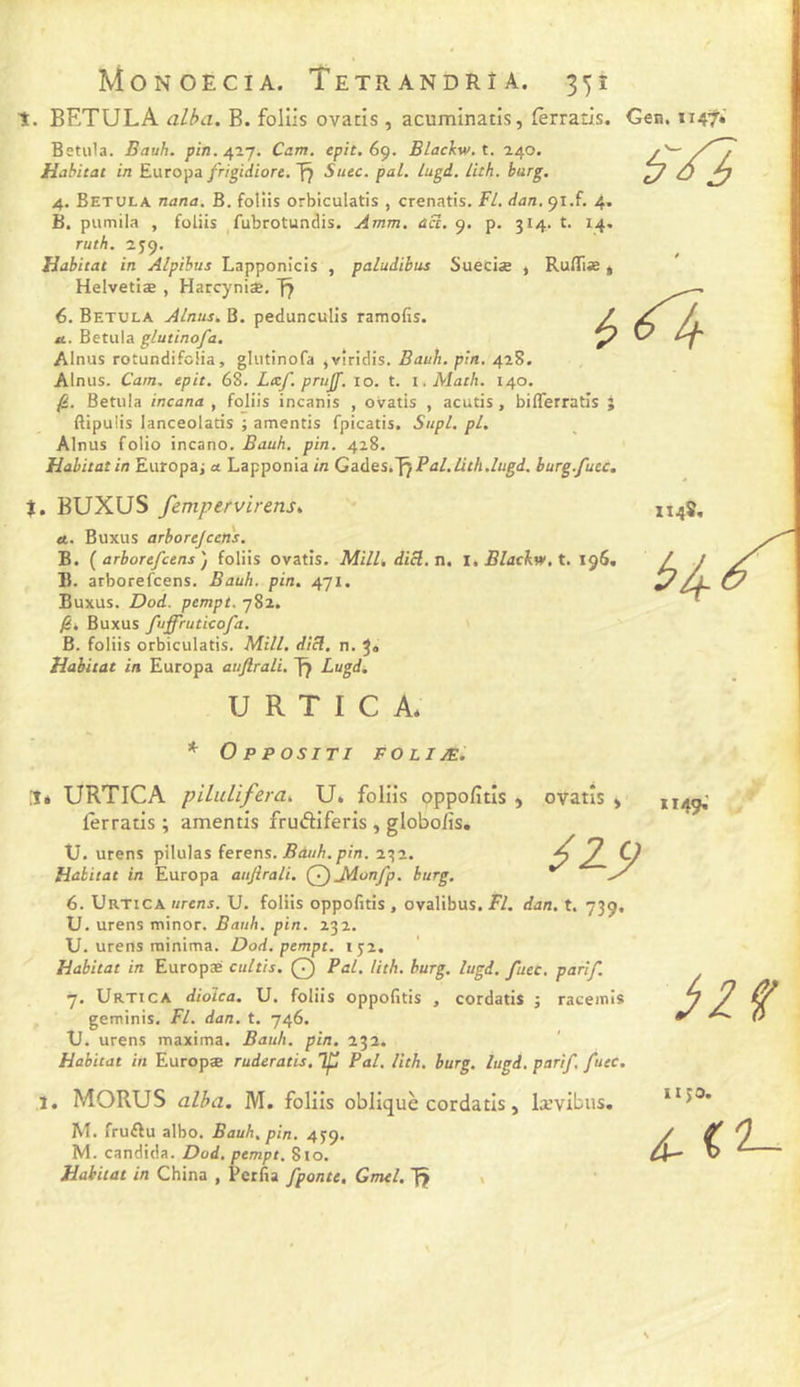 MONOECIA. TETRANDRIA. 351
1. BETULA alba. B. foliis ovatis, acuminatis, ſerratis. Gen. 1147.
Betula. Bauh. pin. 427. Cam. epit. 69. Blackw. t. 240.
Habitat in Europa frigidiore. ♄ Suec. pal. lugd. lith. burg.
4. BETULA nana. B. foliis orbiculatis, crenatis. Fl. dan. 91.f. 4.
B. pumila, foliis ſubrotundis. Amm. act. 9. p. 314. t. 14.
ruth. 259.
Habitat in Alpibus Lapponicis, paludibus Sueciæ, Ruſſiæ,
Helvetiæ, Harcyniæ. ♄
6. BETULA Alnus. B. pedunculis ramoſis.
α. Betula glutinoſa.
Alnus rotundifolia, glutinoſa, viridis. Bauh. pin. 428.
Alnus. Cam. epit. 68. Lœſ. pruſſ. 10. t. 1. Math. 140.
β. Betula incana, foliis incanis, ovatis, acutis, biſſerratis;
ſtipulis lanceolatis; amentis ſpicatis. Supl. pl.
Alnus folio incano. Bauh. pin. 428.
Habitat in Europa; α Lapponia in Gades. ♄ Pal. lith. lugd. burg. ſuec.
563
564
1. BUXUS ſempervirens. 1148.
α. Buxus arboreſcens.
B. (arboreſcens) foliis ovatis. Mill. dict. n. 1. Blackw. t. 196.
B. arboreſcens. Bauh. pin. 471.
Buxus. Dod. pempt. 782.
β. Buxus ſuffruticoſa.
B. foliis orbiculatis. Mill. dict. n. 3.
Habitat in Europa auſtrali. ♄ Lugd.
546
URTICA.
* OPPOSITIFOLIÆ.
1. URTICA pilulifera. U. foliis oppoſitis, ovatis, 1149.
ſerratis; amentis fructiferis, globoſis.
U. urens pilulas ferens. Bauh. pin. 232.
Habitat in Europa auſtrali. ☉ Monſp. burg.
529
6. URTICA urens. U. foliis oppoſitis, ovalibus. Fl. dan. t. 739.
U. urens minor. Bauh. pin. 232.
U. urens minima. Dod. pempt. 152.
Habitat in Europæ cultis. ☉ Pal. lith. burg. lugd. ſuec. pariſ.
7. URTICA dioïca. U. foliis oppoſitis, cordatis; racemis
geminis. Fl. dan. t. 746.
U. urens maxima. Bauh. pin. 232.
Habitat in Europæ ruderatis. ♃ Pal. lith. burg. lugd. pariſ. ſuec.
528
1. MORUS alba. M. foliis oblique cordatis, lævibus. 1150.
M. fructu albo. Bauh. pin. 459.
M. candida. Dod. pempt. 810.
Habitat in China, Perſia ſponte. Gmel. ♄